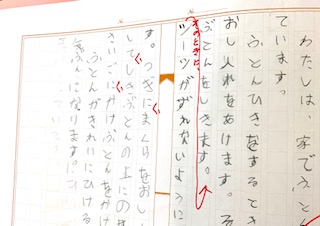 わたしは、家でふとん
ています。
ふとんひきをするとき
おし入れをあけます。そ
ぶとんをしきます。
そのときに、
シーツがずれないように
す。つぎにまくらをおし
してしきぶとんの上にのせ
さいごにかけぶとんをかけ
ふとんがきれいにひける
気ぶんになります。